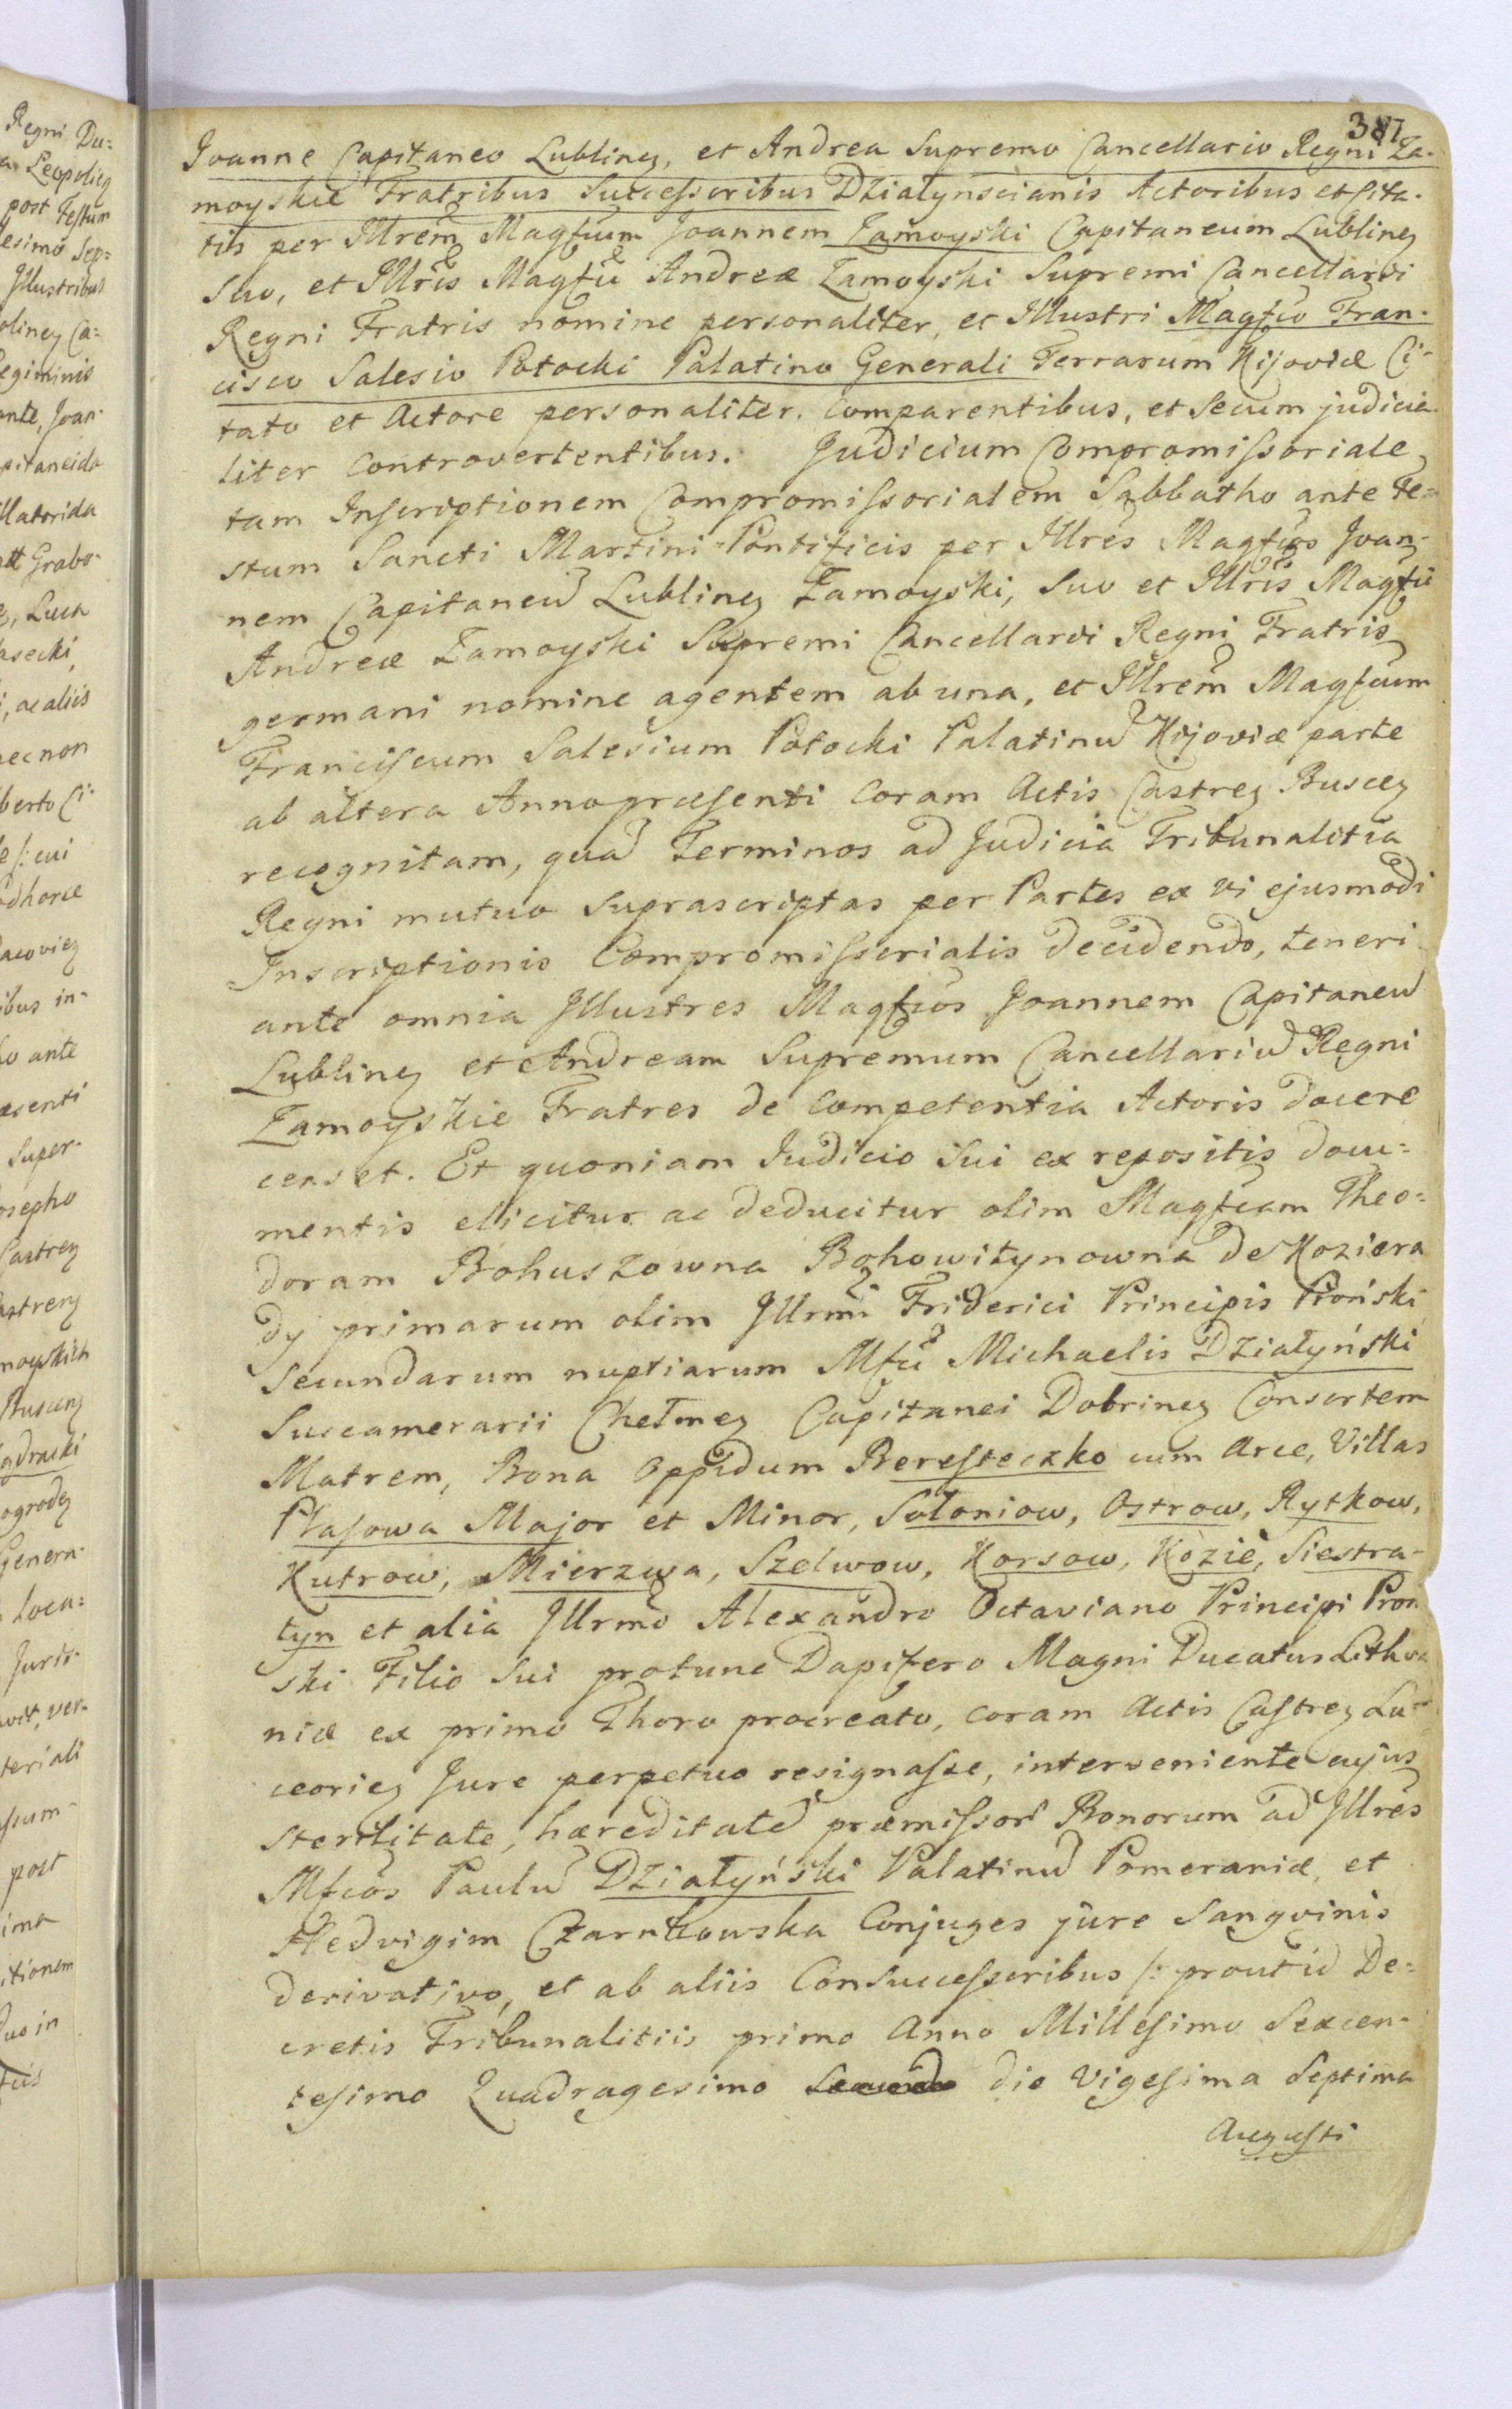 387
Joanne Capitaneo Lublineȝ, et Andrea Supremo Cancellario Regni Za-
moyskie Fratribus Successoribus Działynscianis Actoribus et Cita-
tis per Illrem Magfcum Joannem Zamoyski Capitaneum Lublineȝ
suo, et Illris Magfci Andreæ Zamoyski Supremi Cancellarii
Regni Fratris nomine personaliter, et Illustri Magfco Fran-
cisco Salesio Potocki Palatino Generali Terrarum Kijoviæ Ci-
tato et Actore personaliter comparentibus, et secum judicia-
liter controvertentibus. Judicium Compromissoriale,
tam Inscriptionem Compromissorialem Sabbatho ante Fe-
stum Sancti Martini Pontificis per Illres Magfcos Joan-
nem Capitaneu Lublineȝ Zamoyski, suo et Illris Magfci
Andreæ Zamoyski Supremi Cancellarii Regni Fratris
germani nomine agentem ab una, et Illrem Magfcum
Franciscum Salesium Potocki Palatinu Kijoviæ parte
ab altera Anno præsenti coram Actis Castreȝ Busceȝ
recognitam, quad Terminos ad Judicia Tribunalitia
Regni mutuo suprascriptas per Partes ex vi ejusmodi
Inscriptionis Compromissorialis decidendo, teneri
ante omnia Illustres Magfcos Joannem Capitaneu
Lublineȝ et Andream Supremum Cancellariu Regni
Zamoyskie Fratres de competentia Actoris docere
censet. Et quoniam Judicio sui ex repositis docu-
mentis elicitur ac deducitur olim Magfcam Theo-
doram Bohuszowna Bohowitynowna de Koziera
dy primarum olim Illrmi Friderici Principis Proński
secundarum nuptiarum Mfci Michaelis Działyński
Succamerarii Chełmeȝ Capitanei Dobrineȝ Consortem
Matrem, Bona Oppidum Beresteczko cum Arce, Villas
Płasowa Major et Minor, Sołoniow, Ostrow, Rytkow,
Kutrow, Mierzwa, Szelwow, Korsow, Kozie, Siestra-
tyn et alia Illrmo Alexandro Octaviano Principi Pron
ski Filio sui protunc Dapifero Magni Ducatus Lithva
niæ ex primo Thoro procreato, coram Actis Castreȝ Lu-
ceorieȝ Jure perpetuo resignasse, interveniente cujus
sterilitate, hæreditate præmissor Bonorum ad Illres
Mfcos Paulu Działyński Palatinu Pomeraniæ, et
Hedvigim Czarnkowska Conjuges jure sangvinis
derivativo, et ab aliis Consuccessoribus /: prout id De-
cretis Tribunalitiis primo Anno Millesimo Sexcen-
tesimo Quadragesimo die Vigesima Septima
Augusti